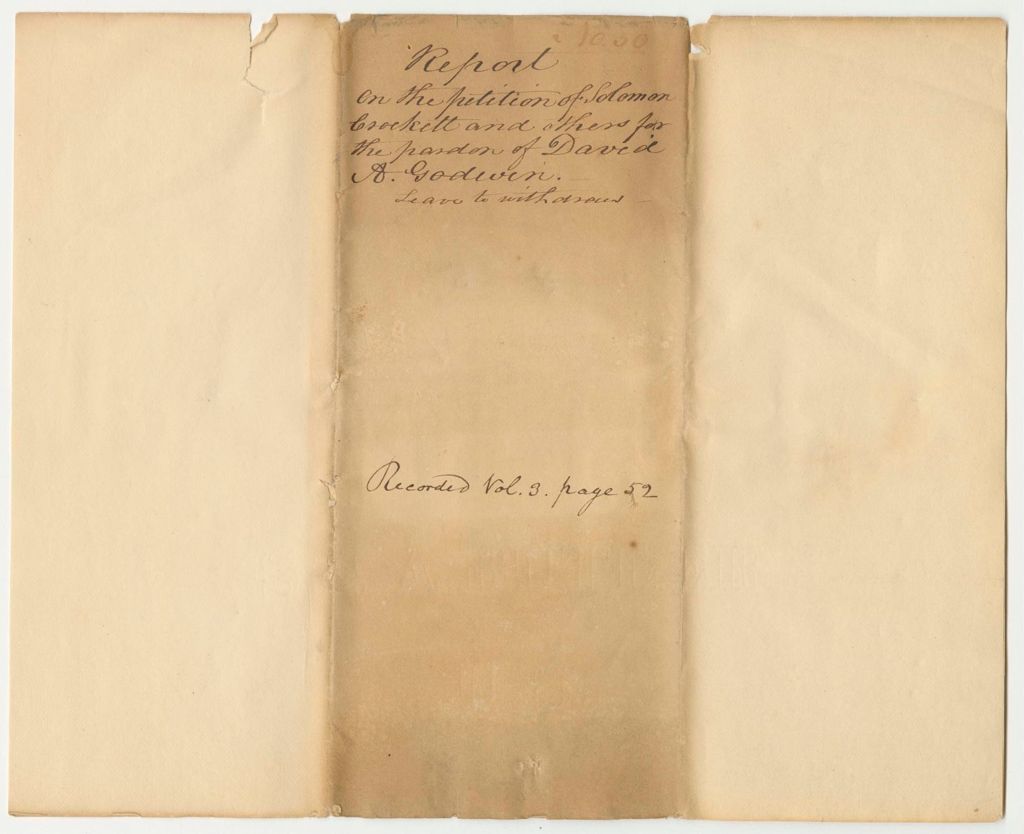 Report
on the petition of Solomon
Crockett and others for
the pardon of David
A. Godwin.
Leave to withdraw
Recorded Vol. 3. page 52